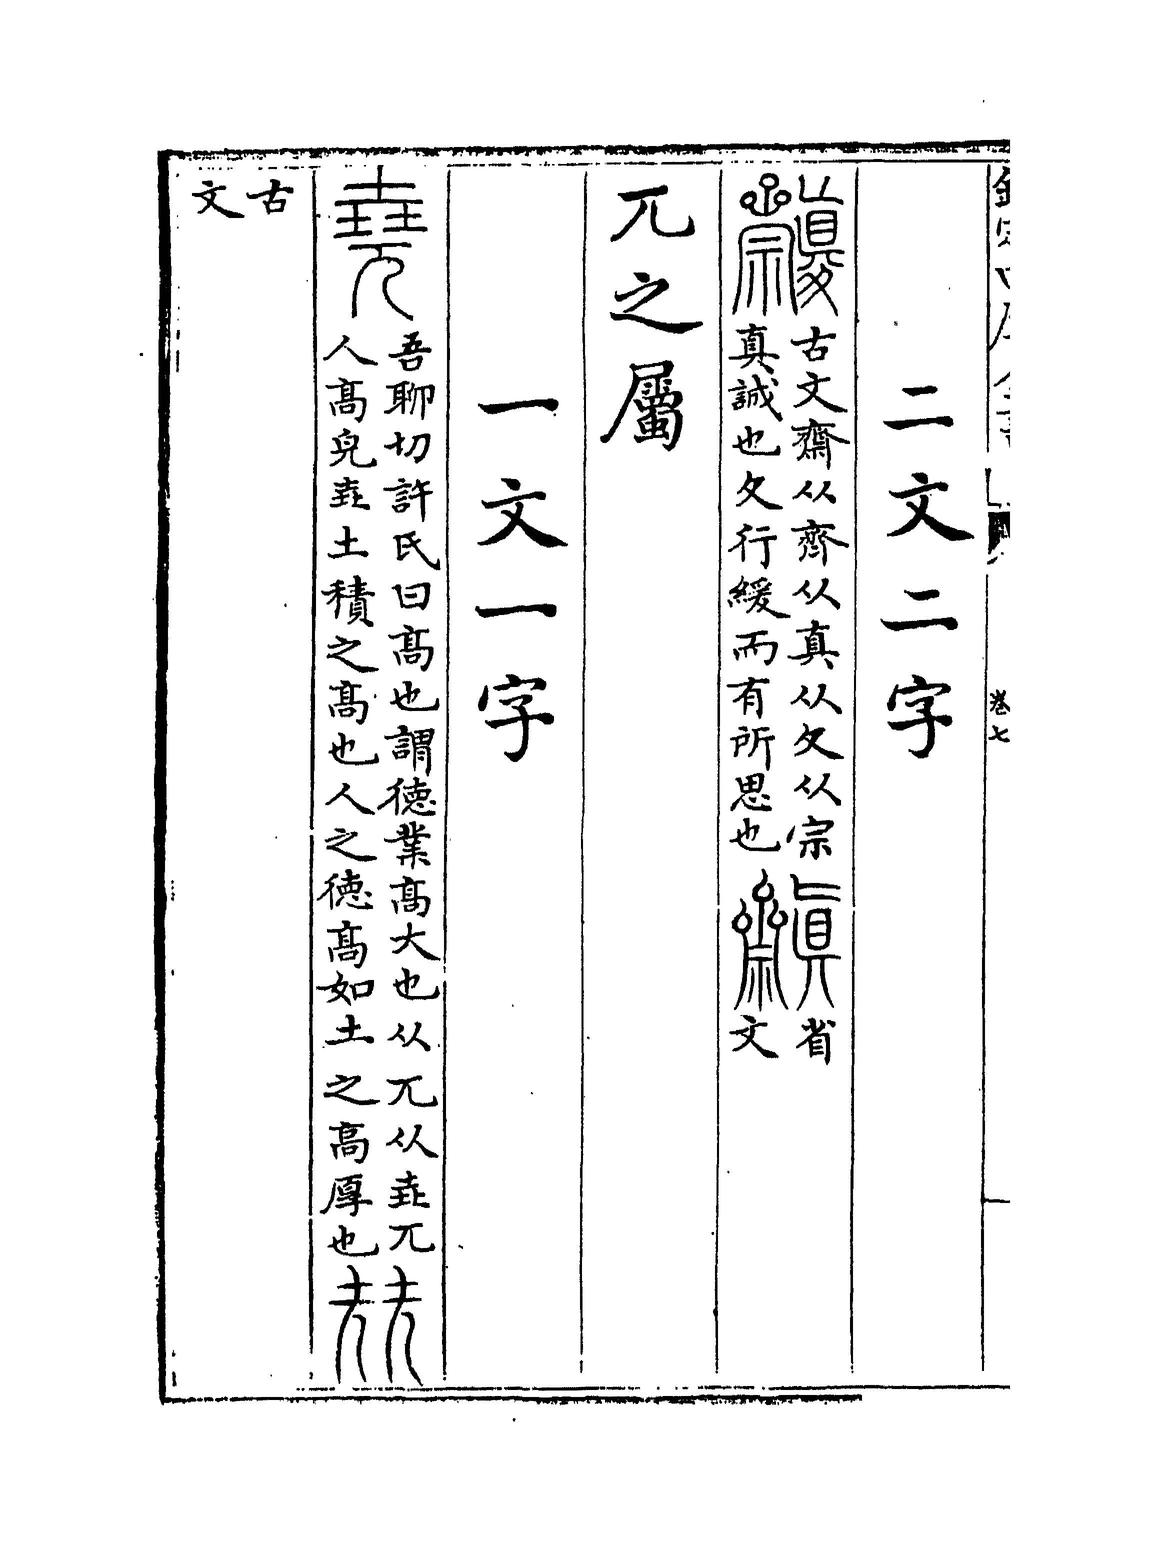 欽定四庫全書
卷七
二文二字
古文齋从齊从真从夂从宗
真誠也夂行緩而有所思也
省
文
兀之屬
一文一字
吾聊切許氏曰髙也謂徳業髙大也从兀从垚兀
人髙皃垚土積之髙也人之徳髙如土之髙厚也
古
文